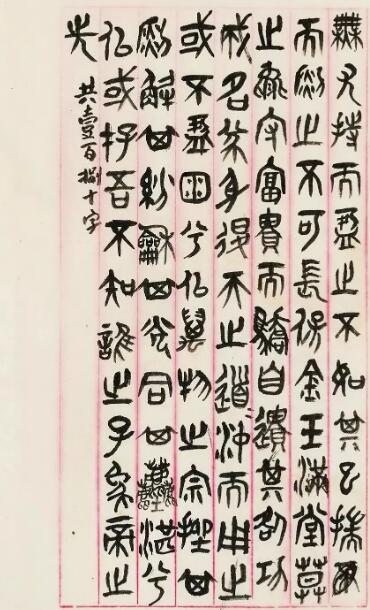 無尤持而盈之不如其已揣
而銳之不可長保金玉滿堂莫
之能守富貴而驕自遺其咎功
成名遂身退天之道沖而用之
或不盈淵兮似萬物之宗挫其
銳解其紛和其光同其塵湛兮
似或存吾不知誰之子象帝之
先
共壹百捌十字